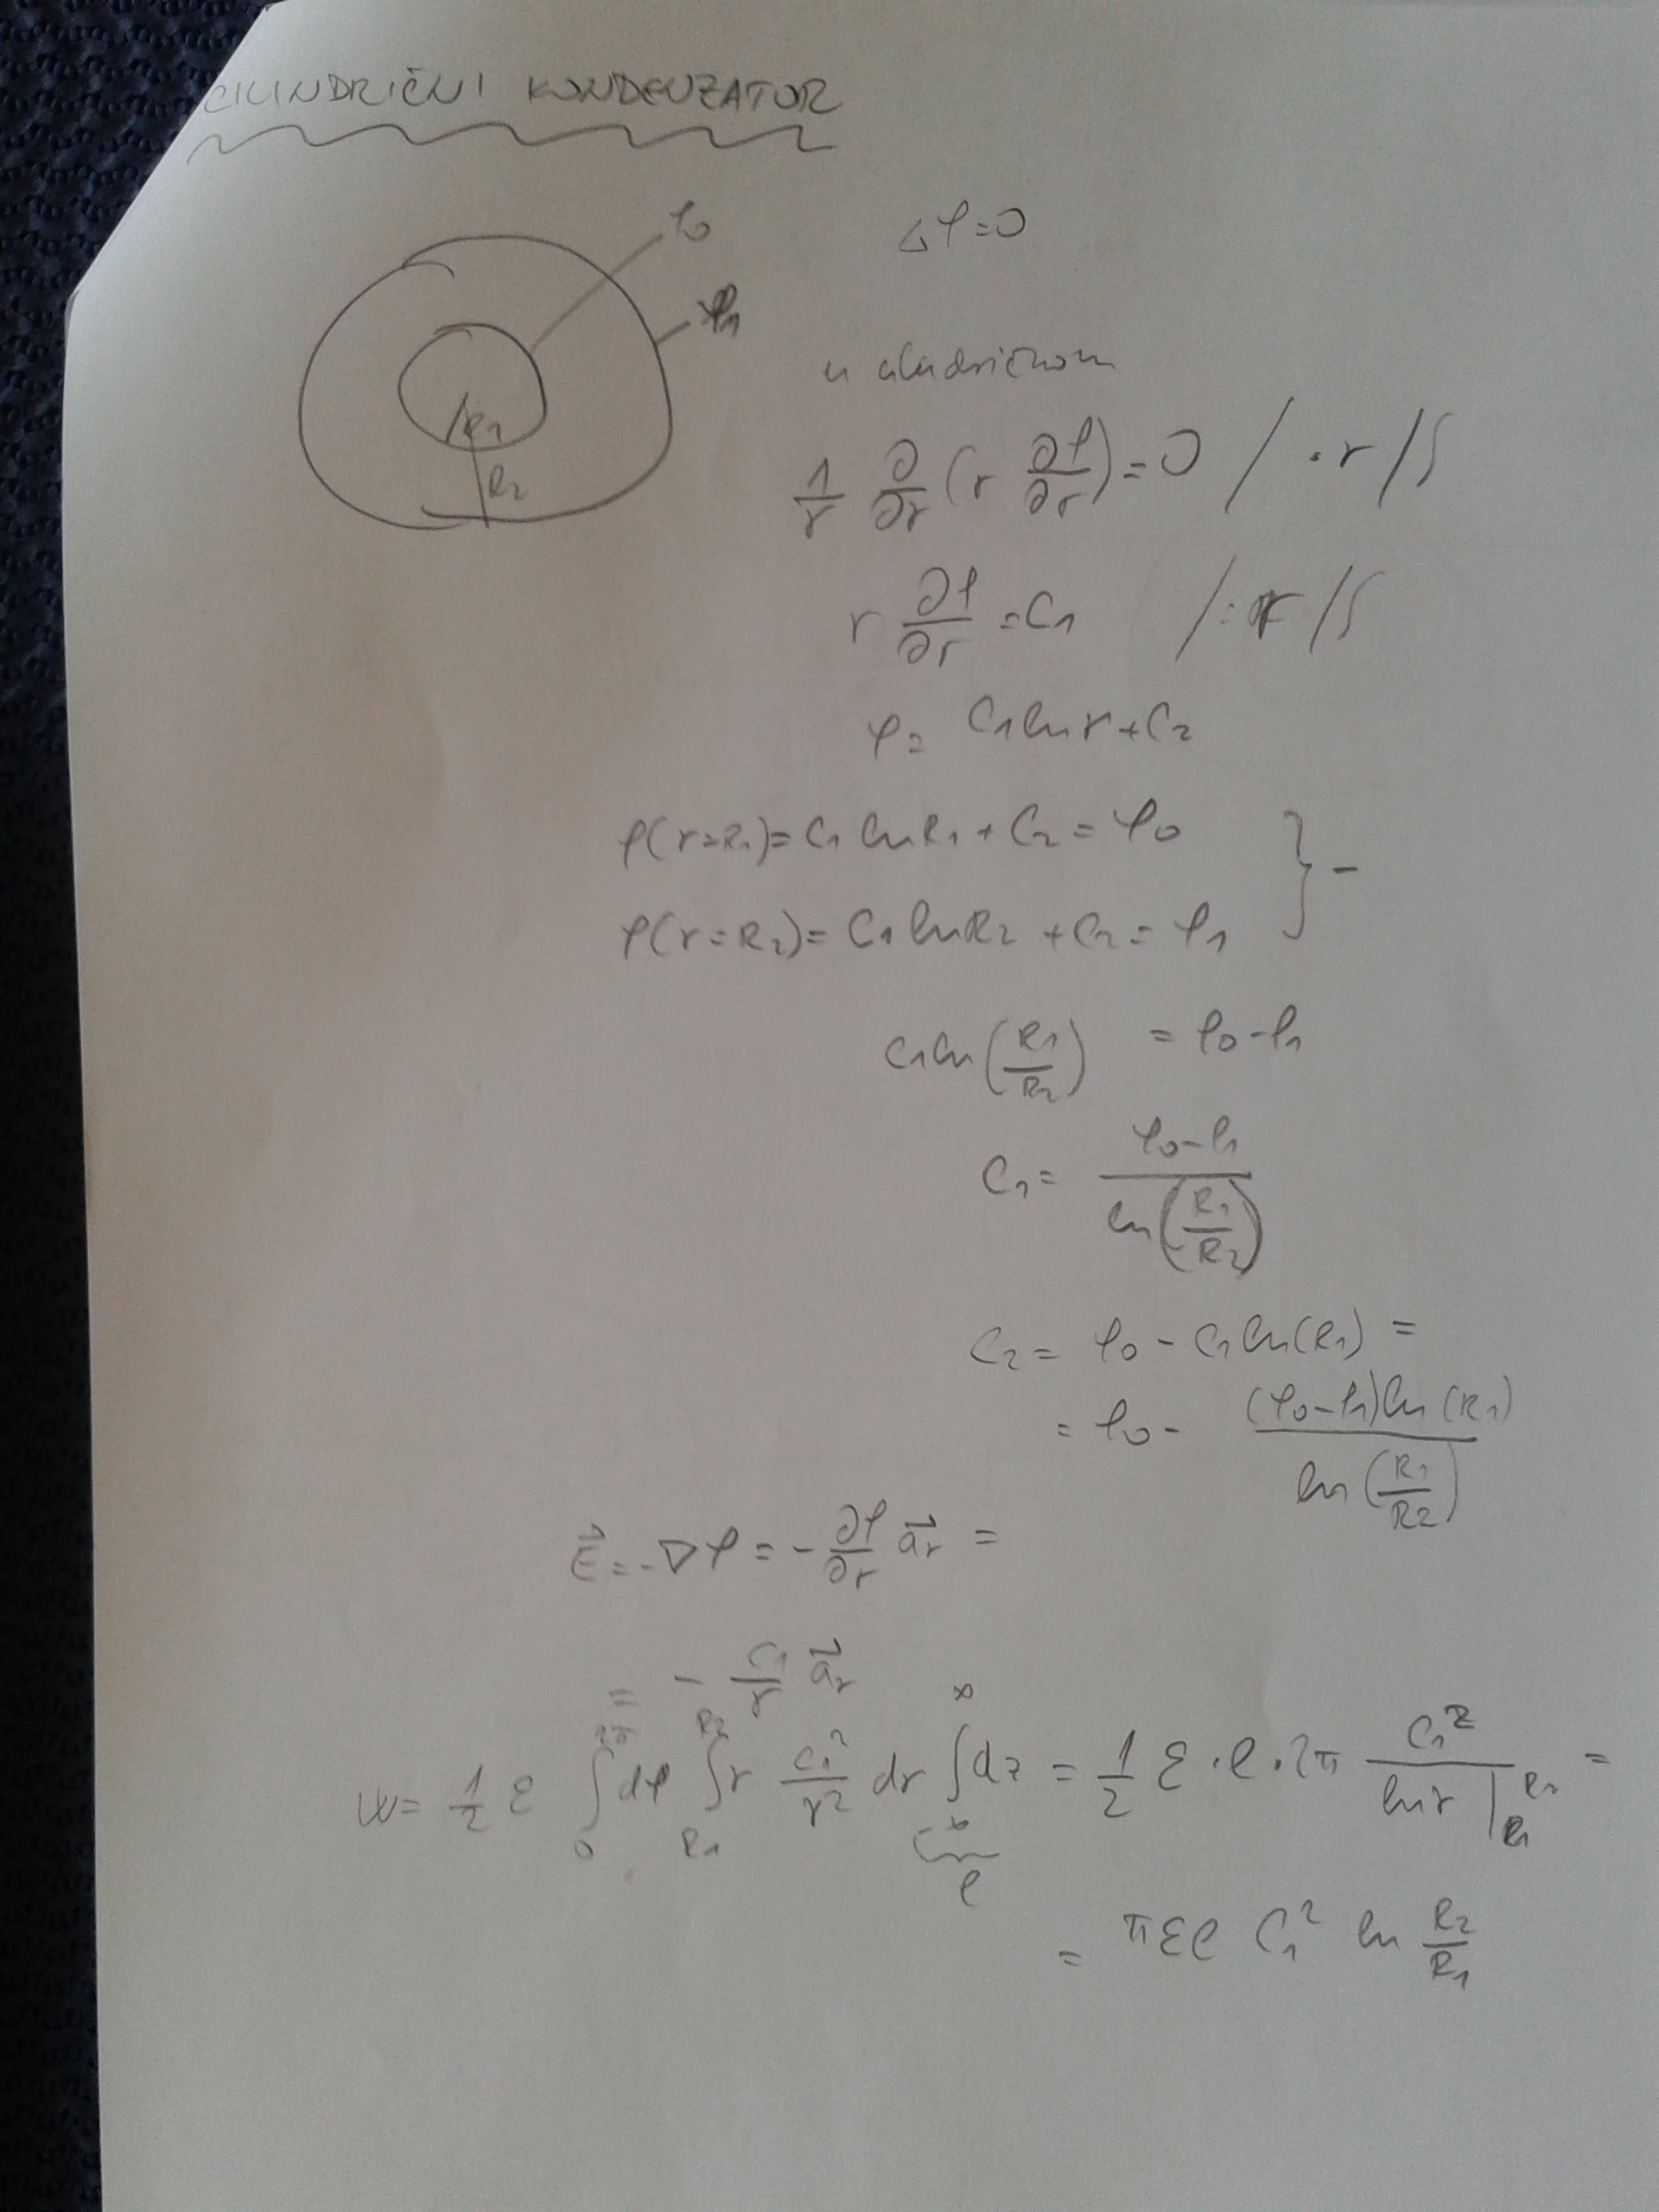 CILINDRIČNI KONDENZATOR
φ0
φ1
R1
R2
Δφ=0
u cilindričnom
1/r ∂/∂r (r ∂φ/∂r) = 0 / ·r /∫
r ∂φ/∂r = C1 /:r /∫
φ = C1 ln r + C2
φ(r=R1) = C1 ln R1 + C2 = φ0
φ(r=R2) = C1 ln R2 + C2 = φ1 } -
C1 ln (R1/R2) = φ0 - φ1
C1 = (φ0 - φ1) / ln (R1/R2)
C2 = φ0 - C1 ln(R1) =
= φ0 - (φ0 - φ1) ln (R1) / ln (R1/R2)
E⃗ = -∇φ = - ∂φ/∂r a⃗r =
= - C1/r a⃗r
W = 1/2 ε ∫_0^2π dφ ∫_R1^R2 r C1²/r² dr ∫_-∞^∞ dz = 1/2 ε · l · 2π C1² / ln r |_R1^R2 =
l
= π ε l C1² ln R2/R1